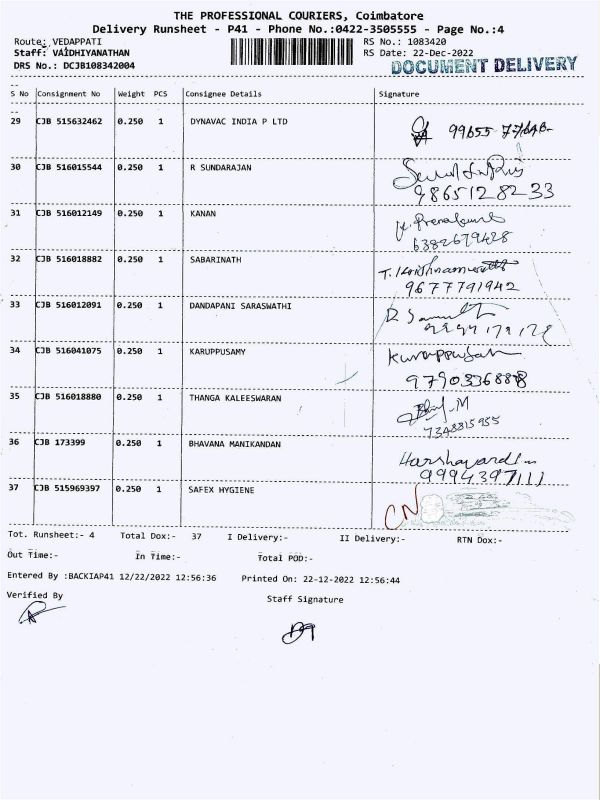 THE PROFESSIONAL COURIERS, Coimbatore
Delivery Runsheet - P41 - Phone No.:0422-3505555 - Page No.:4
Route: VEDAPPATI RS No.: 1083420
Staff: VAIDHIYANATHAN RS Date: 22-Dec-2022
DRS No.: DCJB108342004 DOCUMENT DELIVERY
S No Consignment No Weight PCS Consignee Details Signature
29 CJB 515632462 0.250 1 DYNAVAC INDIA P LTD 99655
30 CJB 516015544 0.250 1 R SUNDARAJAN
9865128233
31 CJB 516012149 0.250 1 KANAN
6382679428
32 CJB 516018882 0.250 1 SABARINATH T. Krishnamurthi
9677791942
33 CJB 516012091 0.250 1 DANDAPANI SARASWATHI
34 CJB 516041075 0.250 1 KARUPPUSAMY Kuruppusah
9790336888
35 CJB 516018880 0.250 1 THANGA KALEESWARAN
7348815955
36 CJB 173399 0.250 1 BHAVANA MANIKANDAN
9994397111
37 CJB 515969397 0.250 1 SAFEX HYGIENE CN
Tot. Runsheet:- 4 Total Dox:- 37 I Delivery:- II Delivery:- RTN Dox:-
Out Time:- In Time:- Total POD:-
Entered By :BACKIAP41 12/22/2022 12:56:36 Printed On: 22-12-2022 12:56:44
Verified By Staff Signature